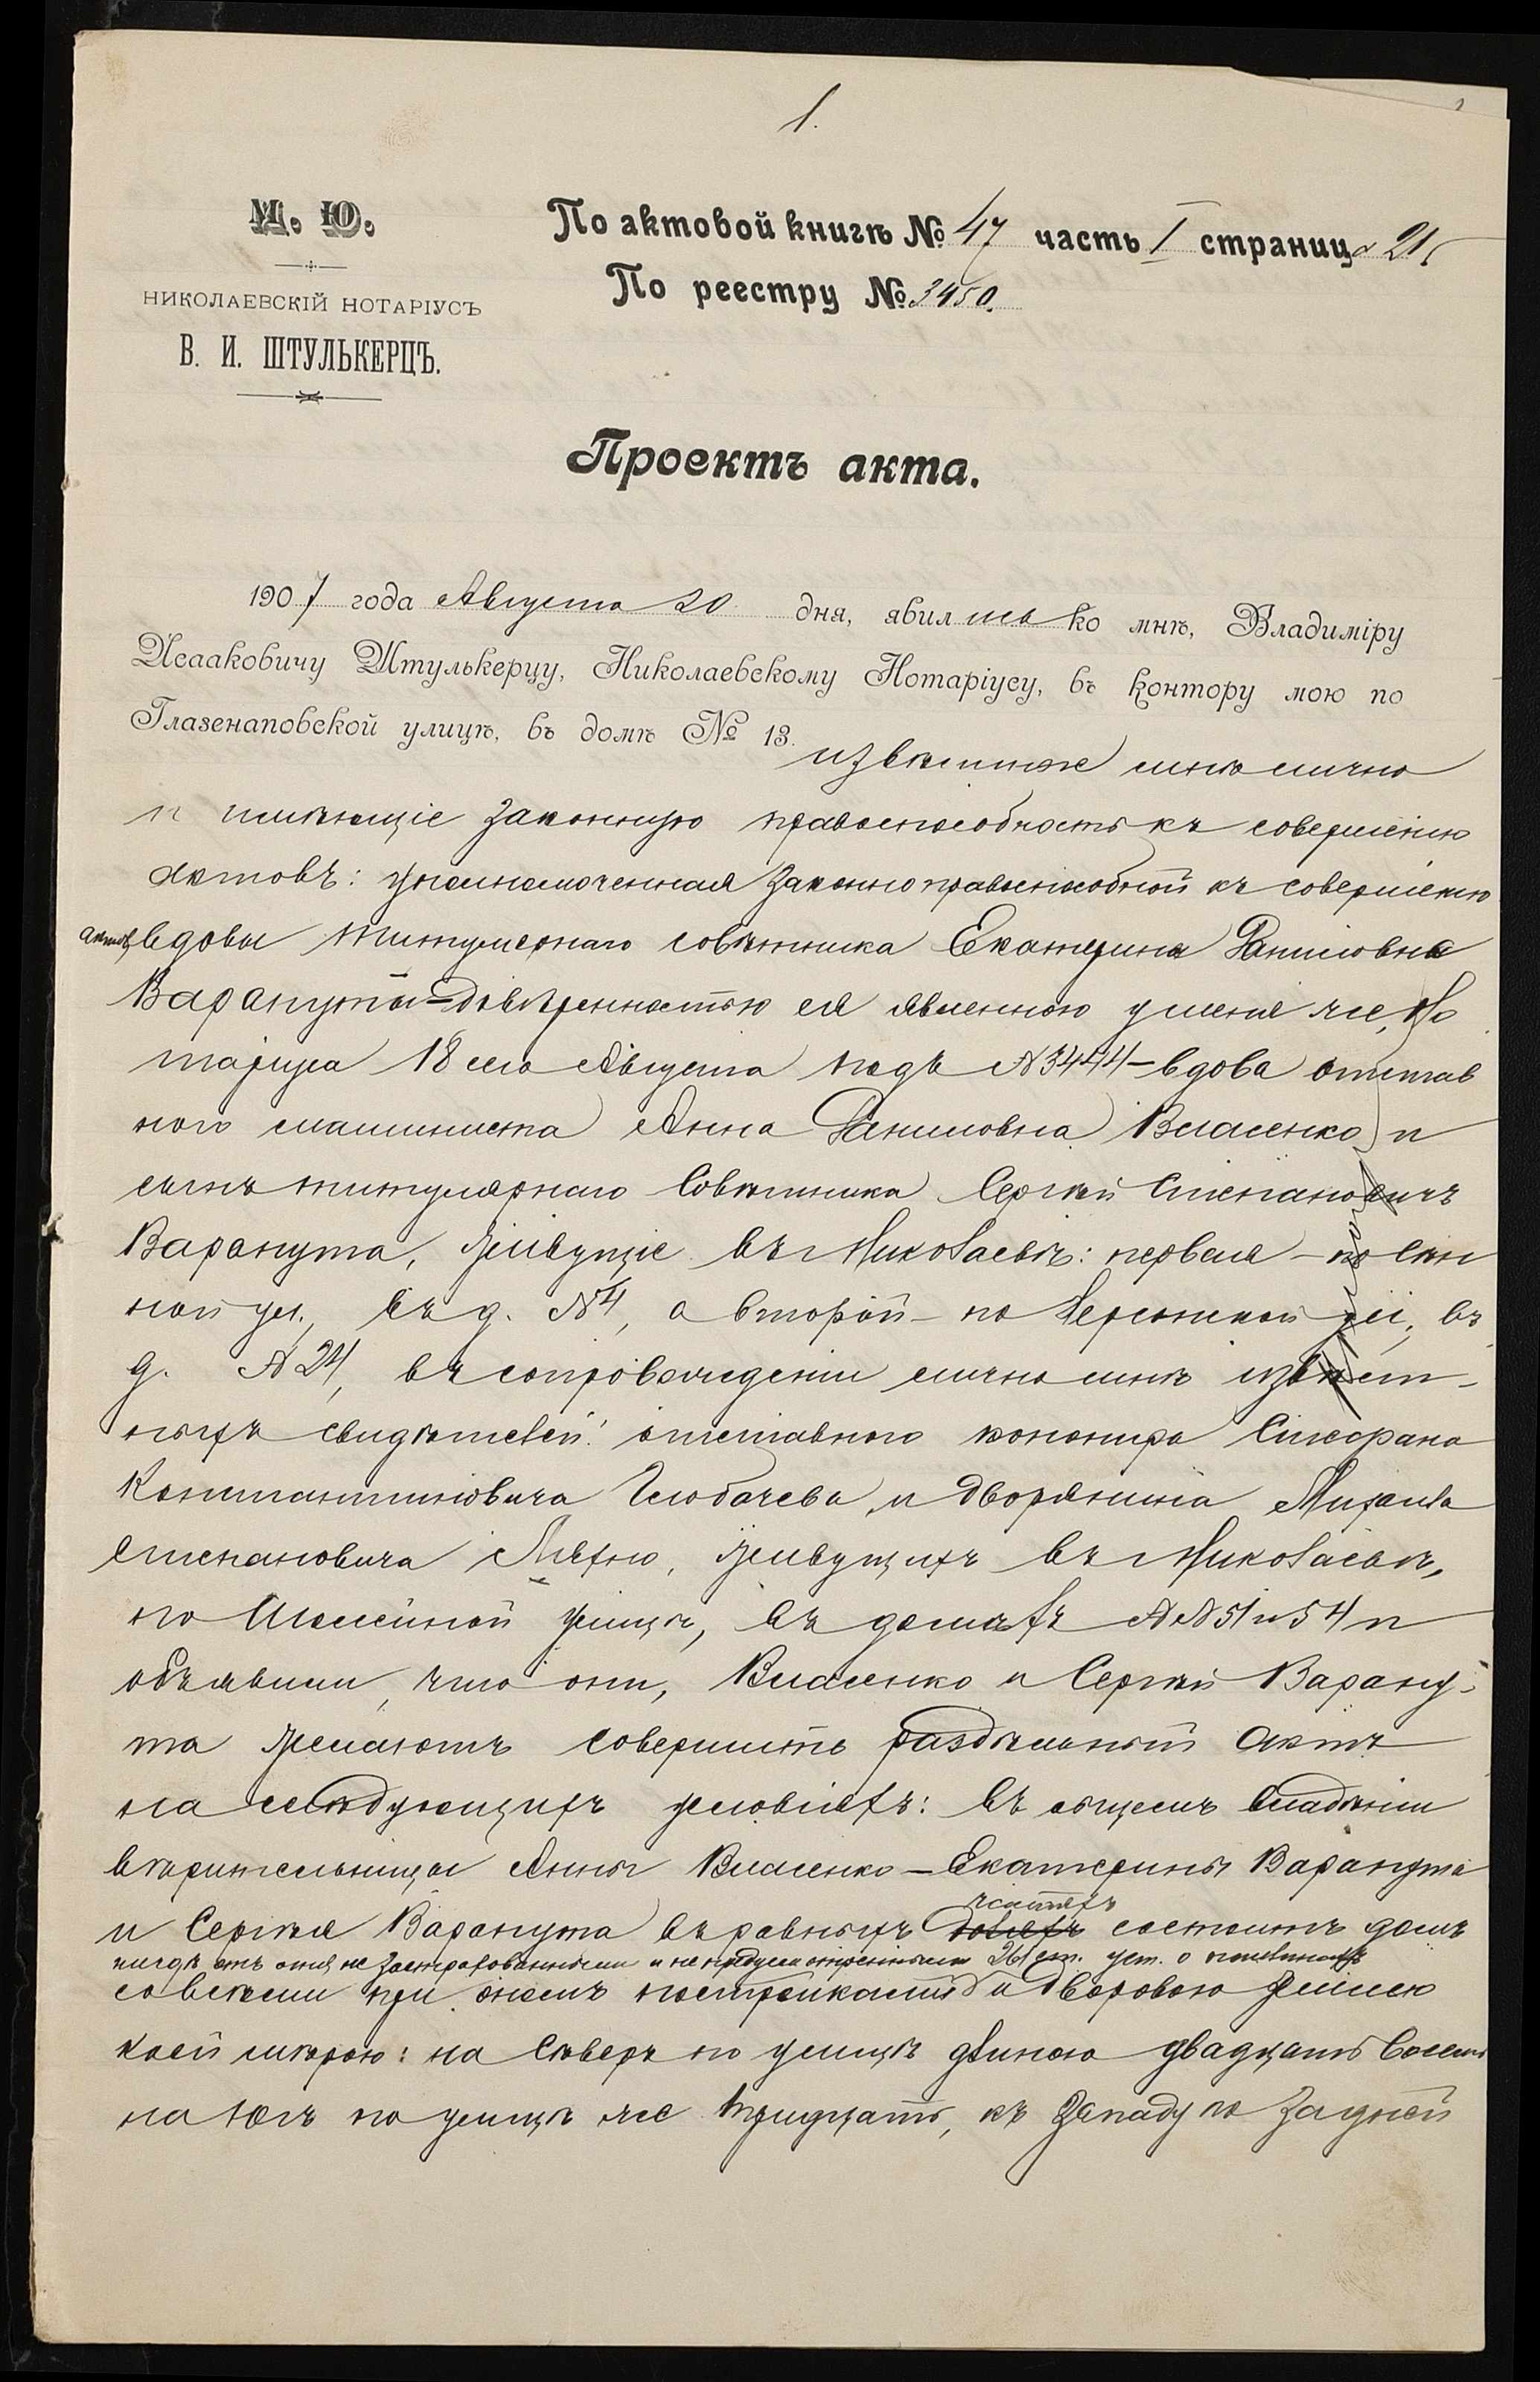 1.
М. Ю.
НИКОЛАЕВСКІЙ НОТАРІУСЪ
В. И. ШТУЛЬКЕРЦЪ.
По актовой книгѣ № 47 часть I страница 215
По реестру № 3450.
Проектъ акта.
1907 года Августа 20 дня, явились ко мнѣ, Владиміру
Исааковичу Штулькерцу, Николаевскому Нотаріусу, въ контору мою по
Глазенаповской улицѣ, въ домѣ № 13. извѣстные мнѣ лично
и имѣющіе законную правоспособность къ совершенію
актовъ: уполномоченная законно правоспособной къ совершенію
актовъ вдовы титулярнаго совѣтника Екатерины Даниловны
Варанута довѣренностью ея явленною у меня же, Но
таріуса 18 сего Августа подъ №3444 – вдова отстав
ного машиниста Анна Даниловна Власенко и
сынъ титулярнаго Совѣтника Сергѣй Степановичъ
Варанута, живущіе въ Николаевѣ: первая – по Сѣн
ной ул., въ д. №4, а второй – по Херсонской ул., въ
д. №24, въ сопровожденіи лично мнѣ извѣст-
ныхъ свидѣтелей: отставного канонира
Константиновича и дворянина Михаила
Степановича живущихъ въ Николаевѣ,
по улицѣ, въ домахъ №№51 и 54 и
объявили, что они, Власенко и Сергѣй Варану-
та желаютъ совершить раздѣльный актъ
на слѣдующихъ условіяхъ: въ общемъ владѣніи
вѣрительницы Анны Власенко – Екатерины Варанута
частяхъ
и Сергѣя Варанута въ равныхъ доляхъ состоитъ домъ
нигдѣ отъ огня не застрахованными и не предусмотрѣнными 261 ст. уст. о пошлинахъ
со всѣми при ономъ постройками и дворовою землею
коей мѣрою: на Сѣверъ по улицѣ длиною двадцать восемь
на Югъ по улицѣ же тридцать, къ Западу по задней